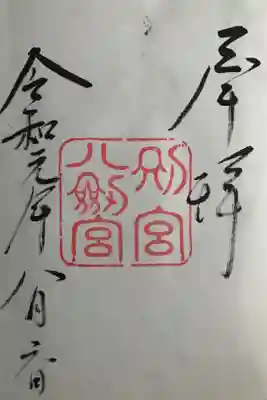 奉拝
別宮
八剣宮
令和元年八月六日